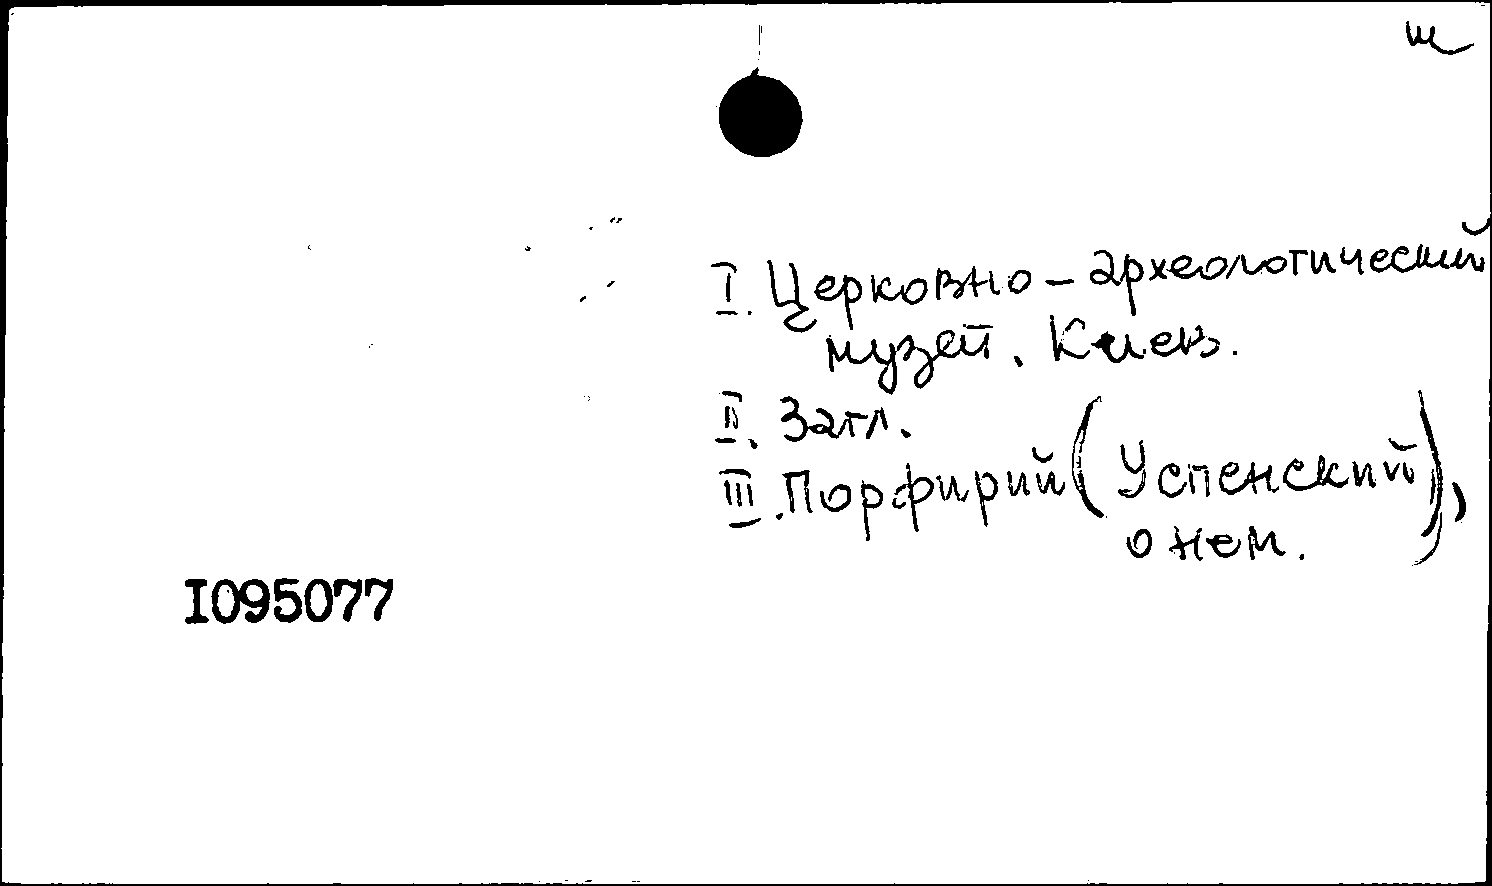 ш
I. Церковно-археологический
музей. Киев.
II. Загл.
III. Порфирий (Успенский),
о нем.
I095077